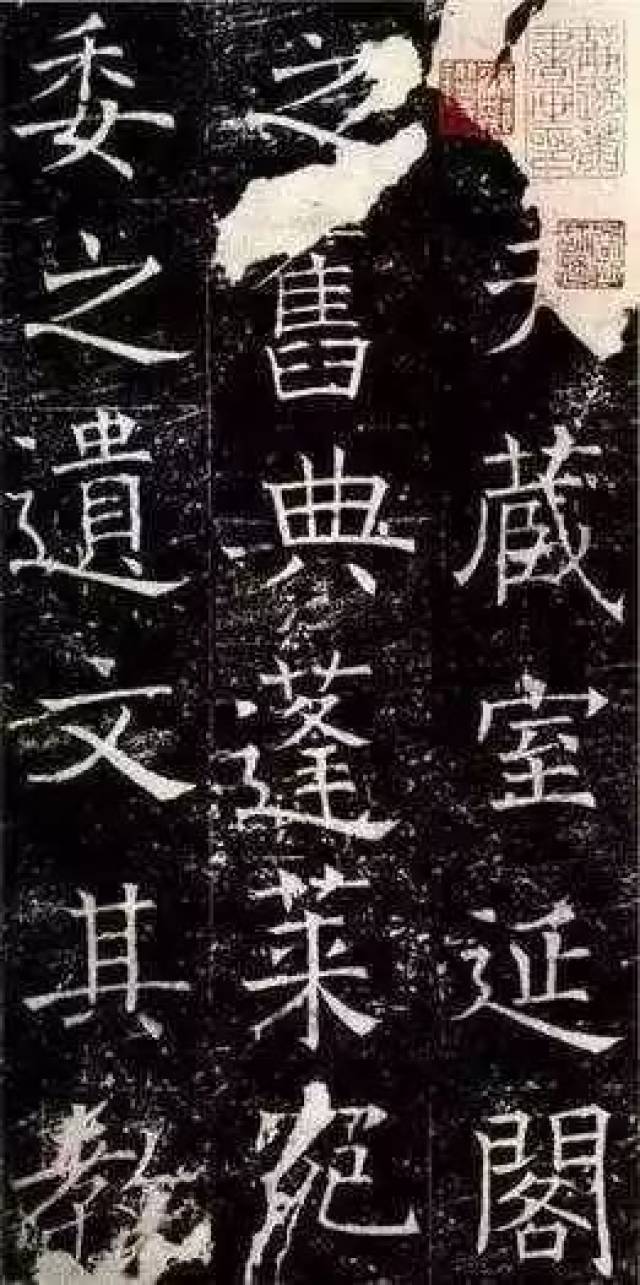 藏室延閣
之舊典蓬莱宛
委之遺文其教